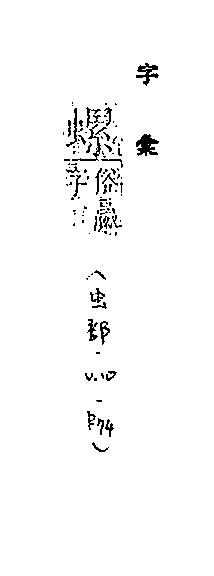 字彙
螺俗蠃字
(虫部-V.10-P74)